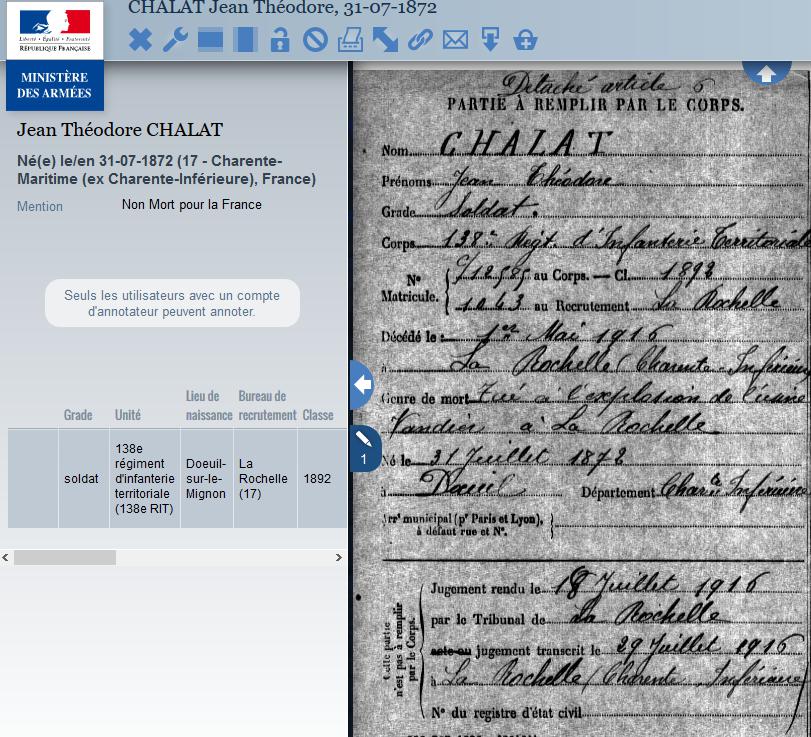 CHALAT Jean Théodore, 31-07-1872
Liberté • Égalité • Fraternité
RÉPUBLIQUE FRANÇAISE
MINISTÈRE
DES ARMÉES
Jean Théodore CHALAT
Né(e) le/en 31-07-1872 (17 - Charente-
Maritime (ex Charente-Inférieure), France)
Mention Non Mort pour la France
Seuls les utilisateurs avec un compte
d'annotateur peuvent annoter.
Grade Unité Lieu de naissance Bureau de recrutement Classe
soldat 138e régiment d'infanterie territoriale (138e RIT) Doeuil-sur-le-Mignon La Rochelle (17) 1892
1
Détaché article 6
PARTIE À REMPLIR PAR LE CORPS.
Nom CHALAT
Prénoms Jean Théodore
Grade Soldat.
Corps 138e Régt d'Infanterie Territoriale
N° Matricule. 12585 au Corps. — Cl. 1892
1043 au Recrutement La Rochelle
Décédé le 1er Mai 1916
à La Rochelle (Charente-Inférieure
Genre de mort Tué à l'explosion de l'usine
Vandier à La Rochelle
Né le 31 Juillet 1872
à Doeuil Département Charte Inférieure
Arrt municipal (pr Paris et Lyon),
à défaut rue et N°.
Cette partie
n'est pas à remplir
par le Corps.
Jugement rendu le 18 Juillet 1916
par le Tribunal de La Rochelle
acte ou jugement transcrit le 29 Juillet 1916
à La Rochelle (Charente Inférieure
N° du registre d'état civil